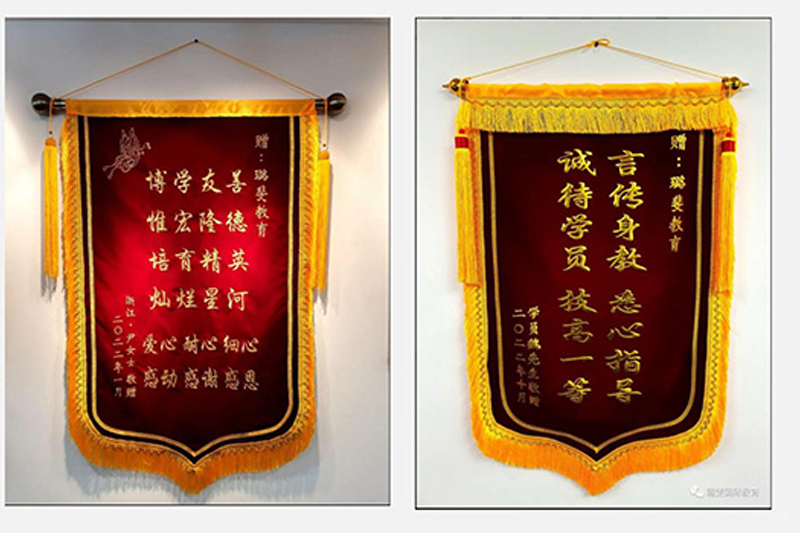 赠：璐斐教育
博学友善
惟宏隆德
培育精英
灿烂星河
爱心耐心细心
感动感谢感恩
浙江·尹女士敬赠
二〇二二年一月
赠：璐斐教育
言传身教 悉心指导
诚待学员 技高一筹
学员魏先生敬赠
二〇二二年十月